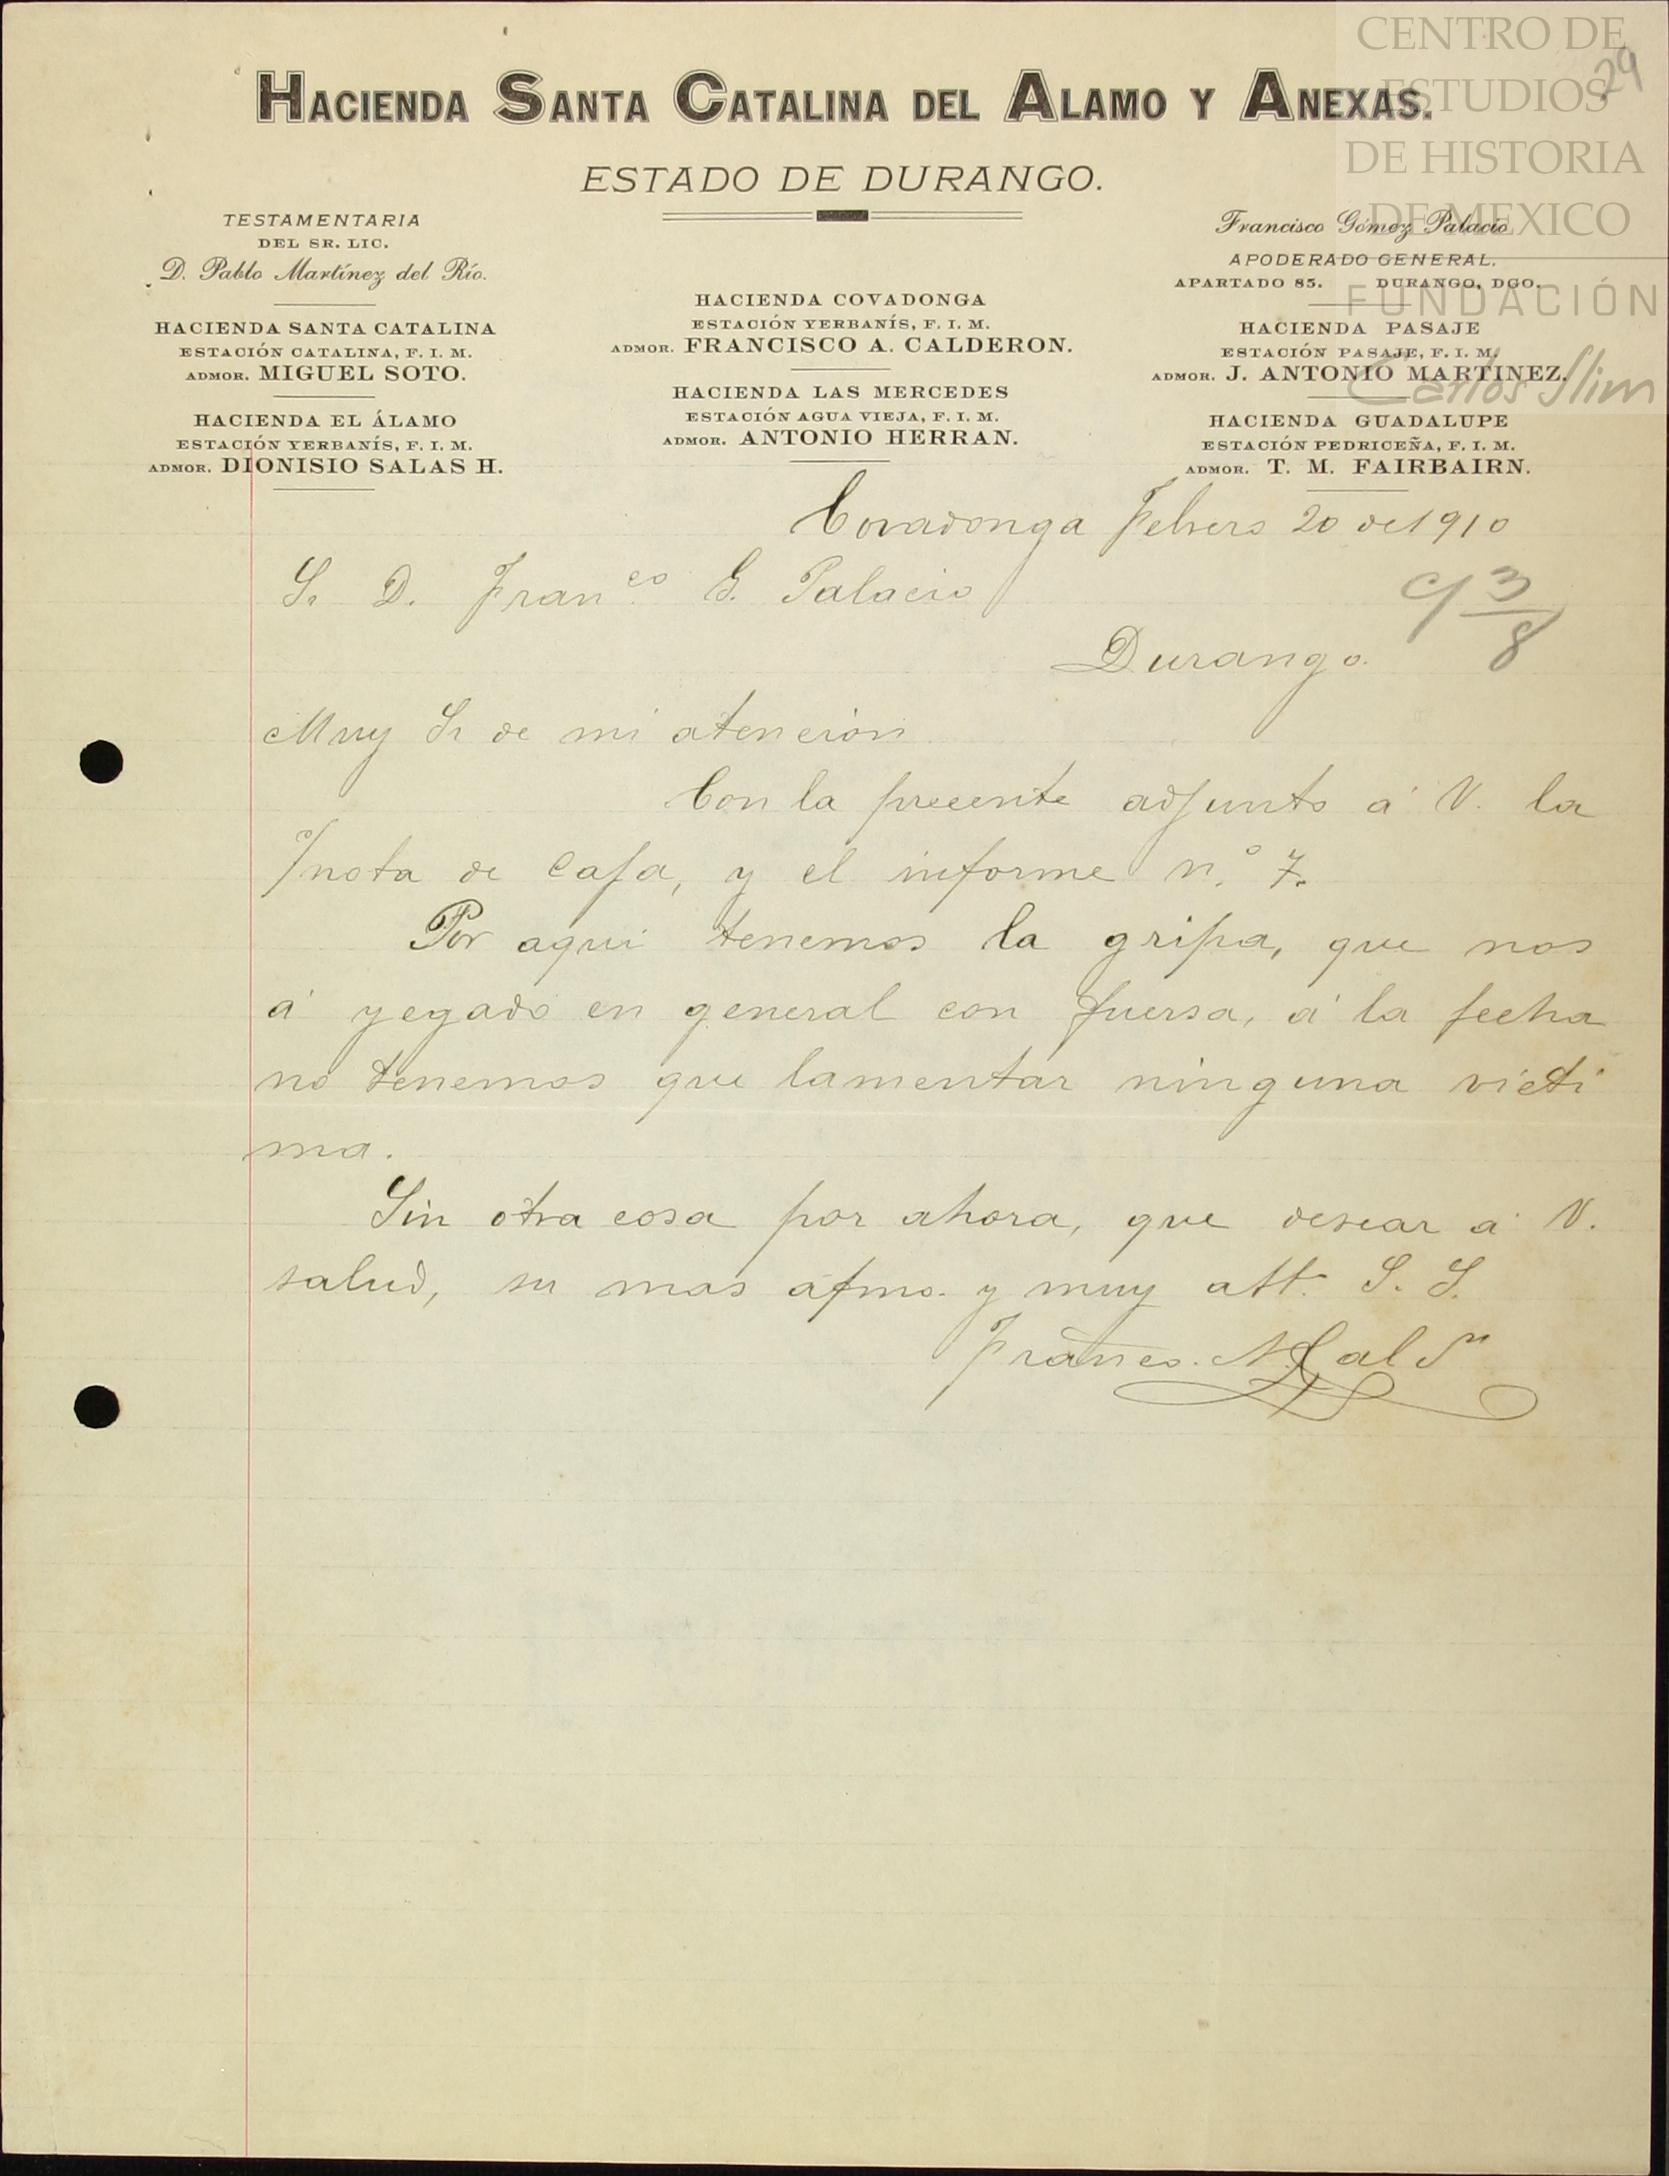 HACIENDA SANTA CATALINA DEL ALAMO Y ANEXAS.
ESTADO DE DURANGO.
TESTAMENTARIA
DEL SR. LIC.
D. Pablo Martínez del Río.
HACIENDA SANTA CATALINA
ESTACIÓN CATALINA, F. I. M.
ADMOR. MIGUEL SOTO.
HACIENDA EL ÁLAMO
ESTACIÓN YERBANÍS, F. I. M.
ADMOR. DIONISIO SALAS H.
HACIENDA COVADONGA
ESTACIÓN YERBANÍS, F. I. M.
ADMOR. FRANCISCO A. CALDERON.
HACIENDA LAS MERCEDES
ESTACIÓN AGUA VIEJA, F. I. M.
ADMOR. ANTONIO HERRAN.
Francisco Gómez Palacio
APODERADO GENERAL.
APARTADO 85. DURANGO, DGO.
HACIENDA PASAJE
ESTACIÓN PASAJE, F. I. M.
ADMOR. J. ANTONIO MARTINEZ.
HACIENDA GUADALUPE
ESTACIÓN PEDRICEÑA, F. I. M.
ADMOR. T. M. FAIRBAIRN.
CENTRO DE
ESTUDIOS
DE HISTORIA
DE MEXICO
FUNDACIÓN
Carlos Slim
29
Covadonga Febrero 20 de 1910
Sr. D. Fran.co G. Palacio
C 3/8
Durango.
Muy Sr de mi atención
Con la precente adjunto á V. la
nota de caja, y el informe n.° 7.
Por aqui tenemos la gripa, que nos
á yegado en general con fuersa, á la fecha
no tenemos que lamentar ninguna victi
ma.
Sin otra cosa por ahora, que desear a V.
salud, su mas afmo. y muy att. S. S.
Franco. A. Cal